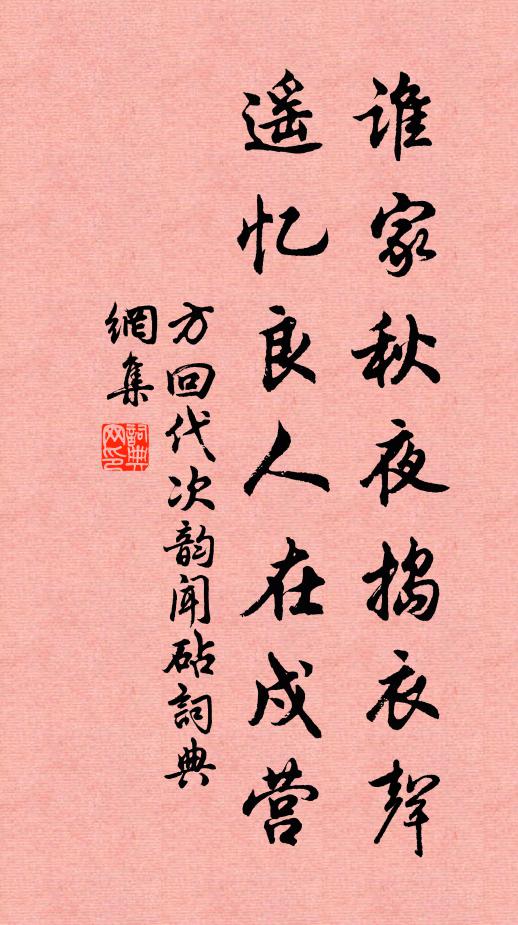 谁家秋夜捣衣声
遥忆良人在戍营
方回代次韵闻砧詞典
網集
詞典网印